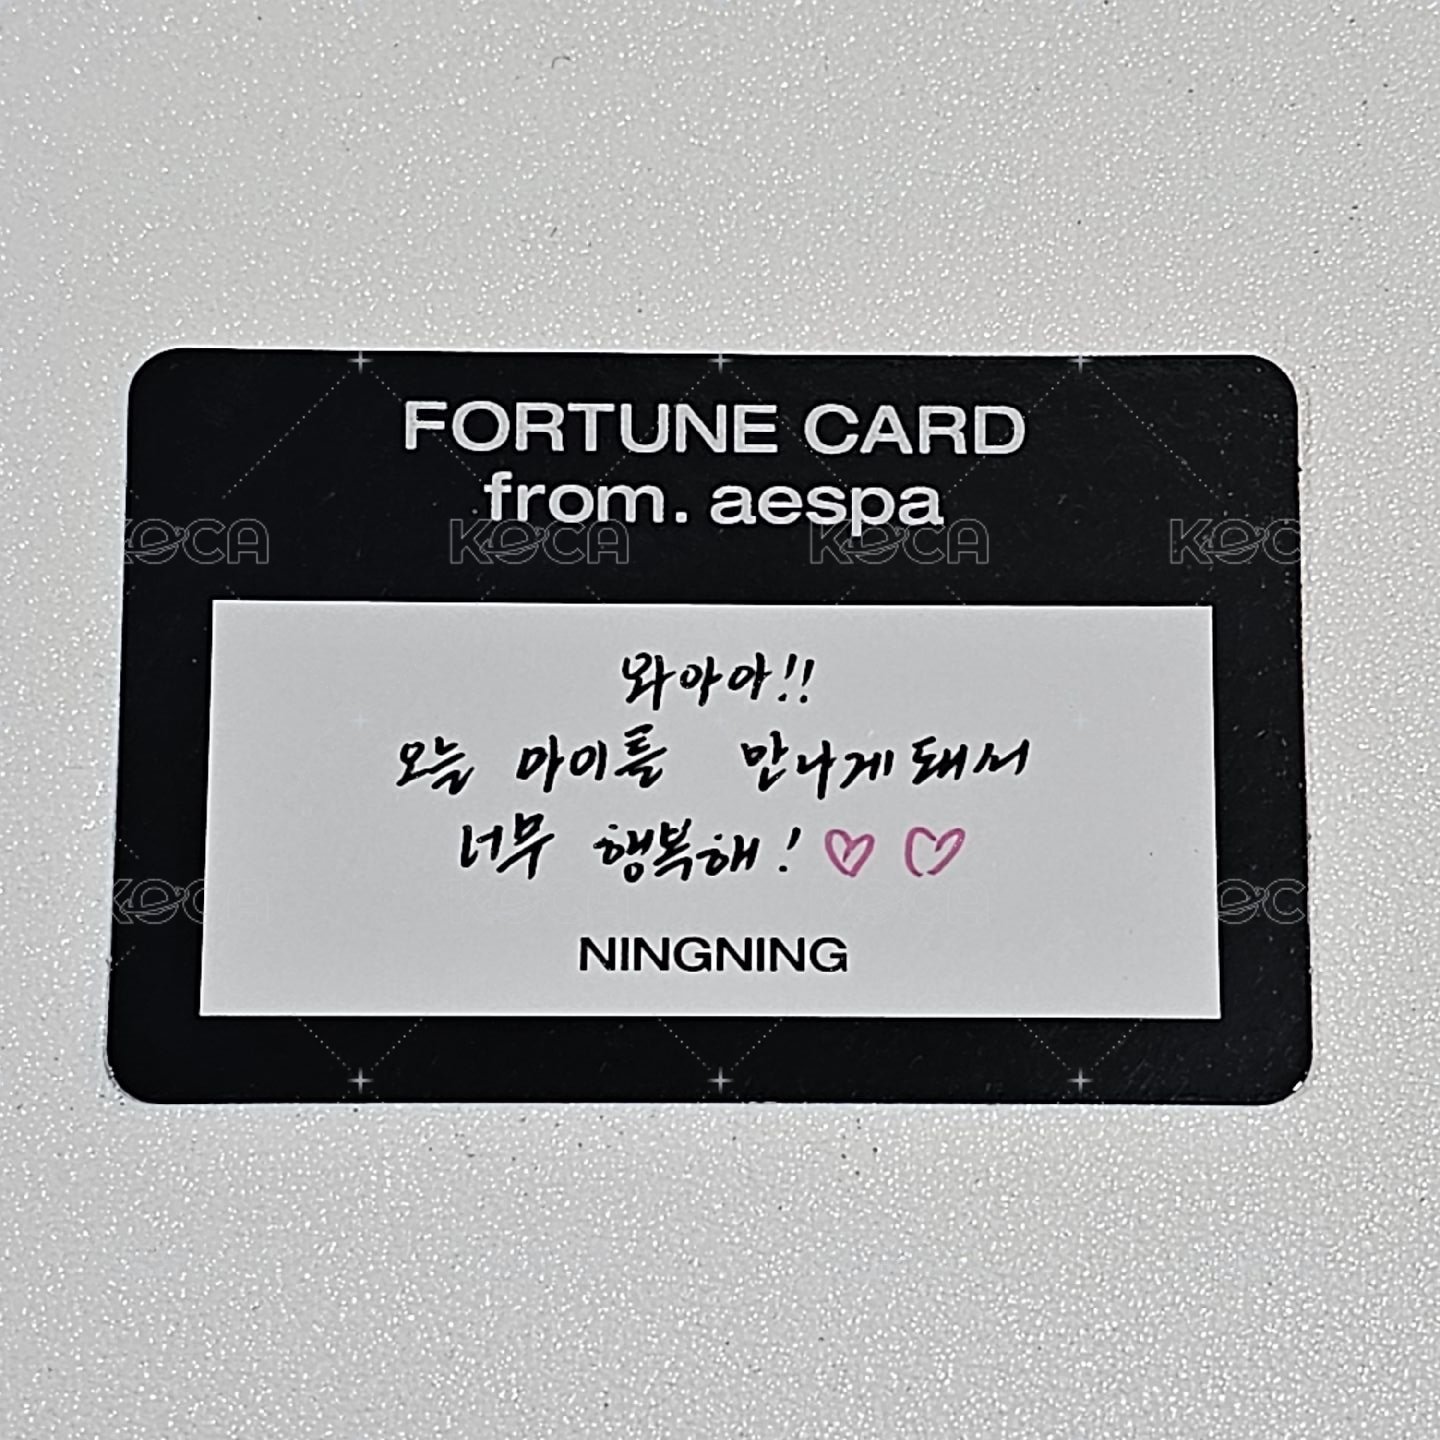 FORTUNE CARD
from. aespa
KOCA KOCA KOCA KOCA
와아아!!
오늘 마이들 만나게돼서
너무 행복해! ♡ ♡
KOCA
NINGNING